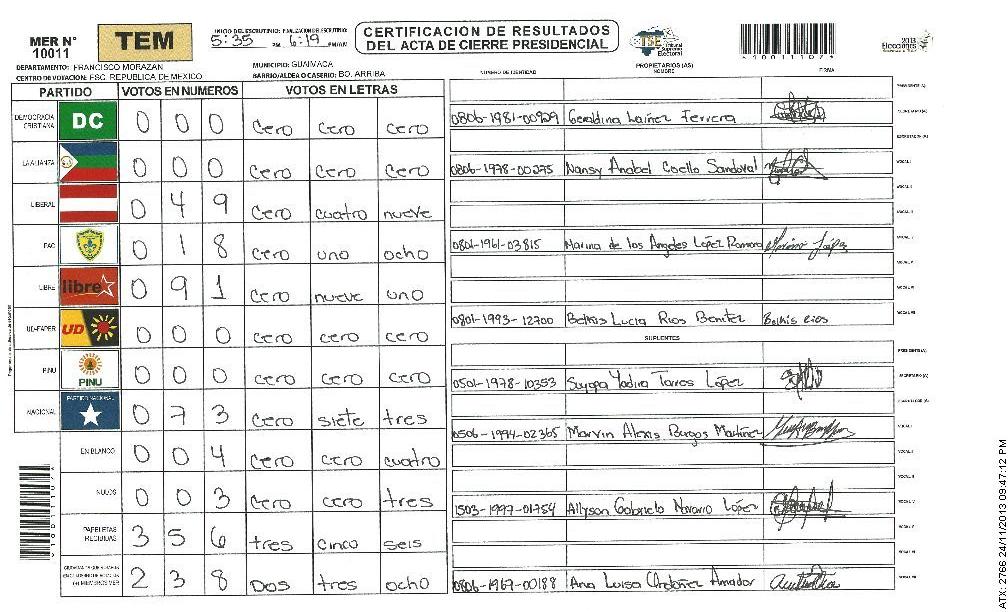 MER N° 10011
TEM
INICIO DEL ESCRUTINIO: FINALIZACION DE ESCRUTINIO:
5:35 PM 6:19 PM/AM
CERTIFICACIÓN DE RESULTADOS
DEL ACTA DE CIERRE PRESIDENCIAL
TSE Tribunal Supremo Electoral
2013 Elecciones
DEPARTAMENTO: FRANCISCO MORAZAN
MUNICIPIO: GUAIMACA
CENTRO DE VOTACION: ESC. REPUBLICA DE MEXICO
BARRIO/ALDEA O CASERIO: BO. ARRIBA
PROPIETARIOS (AS)
NUMERO DE IDENTIDAD NOMBRE FIRMA
PARTIDO VOTOS EN NUMEROS VOTOS EN LETRAS
DEMOCRACIA CRISTIANA DC 0 0 0 Cero Cero Cero
LA ALIANZA 0 0 0 Cero Cero Cero
LIBERAL 0 4 9 Cero cuatro nueve
PAC 0 1 8 Cero uno ocho
LIBRE libre 0 9 1 Cero nueve uno
UD-FAPER UD 0 0 0 Cero Cero Cero
PINU PINU 0 0 0 Cero Cero Cero
NACIONAL PARTIDO NACIONAL 0 7 3 Cero siete tres
EN BLANCO 0 0 4 Cero Cero cuatro
NULOS 0 0 3 Cero Cero tres
PAPELETAS RECIBIDAS 3 5 6 tres cinco seis
2 3 8 Dos tres ocho
PRESIDENTE (A)
0806-1981-00929 Geraldina Laínez Ferrera SECRETARIO (A)
ESCRUTADOR (A)
0806-1978-00275 Nansy Anabel Coello Sandoval VOCAL I
VOCAL II
VOCAL III
0801-1961-03815 Marina de los Angeles López Romero Marina López
0801-1993-12700 Belkis Lucia Rios Benitez Belkis Rios
SUPLENTES
PRESIDENTE (A)
0501-1978-10353 Suyapa Yadira Torres López SECRETARIO (A)
0506-1994-02365 Marvin Alexis Burgos Martinez VOCAL I
1503-1997-01754 Allyson Gabriela Navarro López
0806-1969-00188 Ana Luisa Ordoñez Amador
1001107
ATX: 2766 24/11/2013 09:47:12 PM